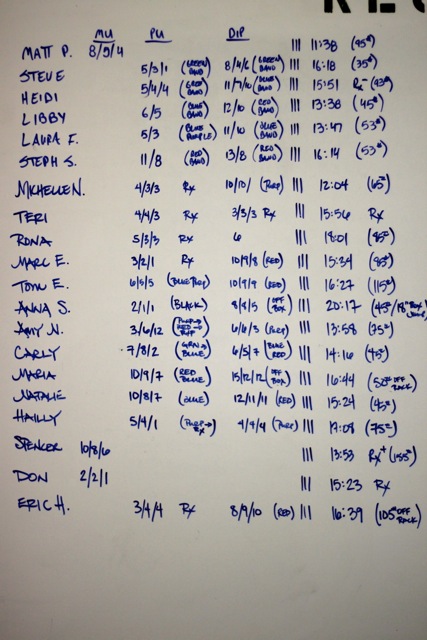 MU PU DIP
MATT P. 8/9/4 ||| 11:38 (95#)
STEVE 5/3/1 (GREEN BAND) 8/4/6 (GREEN BAND) ||| 16:18 (35#)
HEIDI 5/4/4 (GREEN BAND) 11/7/10 (BLUE BAND) ||| 15:51
LIBBY 6/5 (BLUE BAND) 12/10 (RED BAND) ||| 13:38 (45#)
LAURA F. 5/3 (BLUE PURPLE) 11/10 (BLUE BAND) ||| 13:47 (53#)
STEPH S. 11/8 (RED BAND) 13/8 (RED BAND) ||| 16:14 (53#)
MICHELLE N. 4/3/3 Rx 10/10/ (PURP) ||| 12:04 (65#)
TERI 4/4/3 Rx 3/5/3 Rx ||| 15:56 Rx
RONA 5/3/3 Rx 6 ||| 18:01 (85#)
MARC E. 3/2/1 Rx 10/9/8 (RED) ||| 15:34 (85#)
TOM E. 6/5/5 (BLUE/PURP) 10/9/9 (RED) ||| 16:27 (115#)
ANNA S. 2/1/1 (BLACK) 8/8/5 (OFF BOX) ||| 20:17 (45#/18" BOX JUMP)
AMY N. 3/6/12 (PURP→ RED→ OFF) 6/6/3 (PURP) ||| 13:58 (75#)
CARLY 7/8/2 (GRN→ BLUE) 6/5/7 (BLUE RED) ||| 14:16 (45#)
MARIA 10/9/7 (RED BLUE) 15/12/12 (OFF BOX) ||| 16:44 (52# OFF RACK)
NATALIE 10/8/7 (BLUE) 12/11/11 (RED) ||| 15:24 (45#)
HAILLY 5/4/1 (PURP→ Rx) 4/4/4 (PURP) ||| 19:08 (75#)
SPENCER 10/8/6 ||| 13:53 Rx+ (155#)
DON 2/2/1 ||| 15:23 Rx
ERIC H. 3/4/4 Rx 8/9/10 (RED) ||| 16:39 (105# OFF RACK)